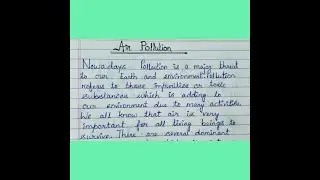 Air Pollution
Nowadays Pollution is a major thread
to our Earth and environment. Pollution
refers to those impurities or toxic
substances which is adding to
our environment due to many activities.
We all know that air is very
important for all living beings to
survive. There are several dominant